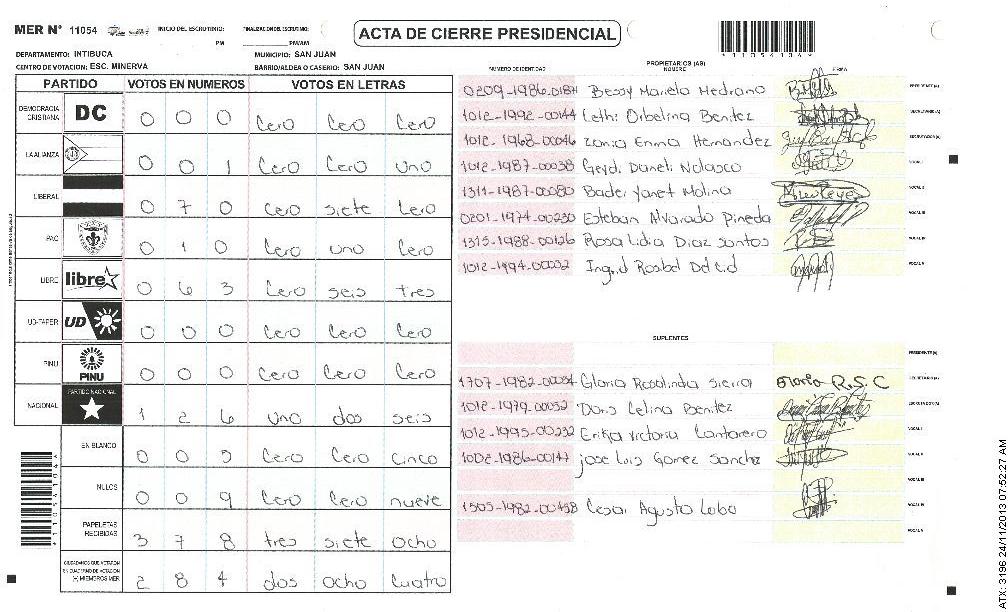 MER N° 11054 INICIO DEL ESCRUTINIO: FINALIZACION DEL ESCRUTINIO:
PM PM/AM
ACTA DE CIERRE PRESIDENCIAL
DEPARTAMENTO: INTIBUCA MUNICIPIO: SAN JUAN
CENTRO DE VOTACION: ESC. MINERVA BARRIO/ALDEA O CASERIO: SAN JUAN
PARTIDO VOTOS EN NUMEROS VOTOS EN LETRAS
DEMOCRACIA CRISTIANA DC 0 0 0 Cero Cero Cero
LA ALIANZA 0 0 1 Cero Cero uno
LIBERAL 0 7 0 Cero siete Cero
PAC 0 1 0 Cero uno Cero
LIBRE libre 0 6 3 Cero seis tres
UD-FAPER UD 0 0 0 Cero Cero Cero
PINU PINU 0 0 0 Cero Cero Cero
NACIONAL PARTIDO NACIONAL 1 2 6 uno dos seis
EN BLANCO 0 0 5 Cero Cero Cinco
NULOS 0 0 9 Cero Cero nueve
PAPELETAS RECIBIDAS 3 7 8 tres siete ocho
CIUDADANOS QUE VOTARON EN CUADERNO DE VOTACION (+) MIEMBROS MER 2 8 4 dos ocho cuatro
PROPIETARIOS (AS)
NUMERO DE IDENTIDAD NOMBRE FIRMA
0209-1986-0187 Bessy Mariela Medrano PRESIDENTE(A)
1012-1992-00144 Lethi Orbelina Benitez SECRETARIO(A)
1012-1968-00046 Zonia Enma Hernandez ESCRUTADOR(A)
1012-1987-00038 Geydi Daneli Nolasco VOCAL I
1311-1987-00080 Bader Yanet Molina VOCAL II
0201-1974-00230 Esteban Alvarado Pineda VOCAL III
1315-1988-00126 Rosa Lidia Diaz Santos VOCAL IV
1012-1994-00032 Ingrid Rosbel Del cid VOCAL V
SUPLENTES
PRESIDENTE(A)
1707-1982-00054 Gloria Rosalinda Sierra Gloria R.S.C SECRETARIO(A)
1012-1979-00052 Doris Celina Benitez ESCRUTADOR(A)
1012-1995-00232 Erika Victoria Cantarero VOCAL I
1002-1986-00147 jose Luis Gomez Sanchez VOCAL II
VOCAL III
1505-1982-00458 Cesar Agusto Lobo VOCAL IV
VOCAL V
ATX: 3196 24/11/2013 07:52:27 AM